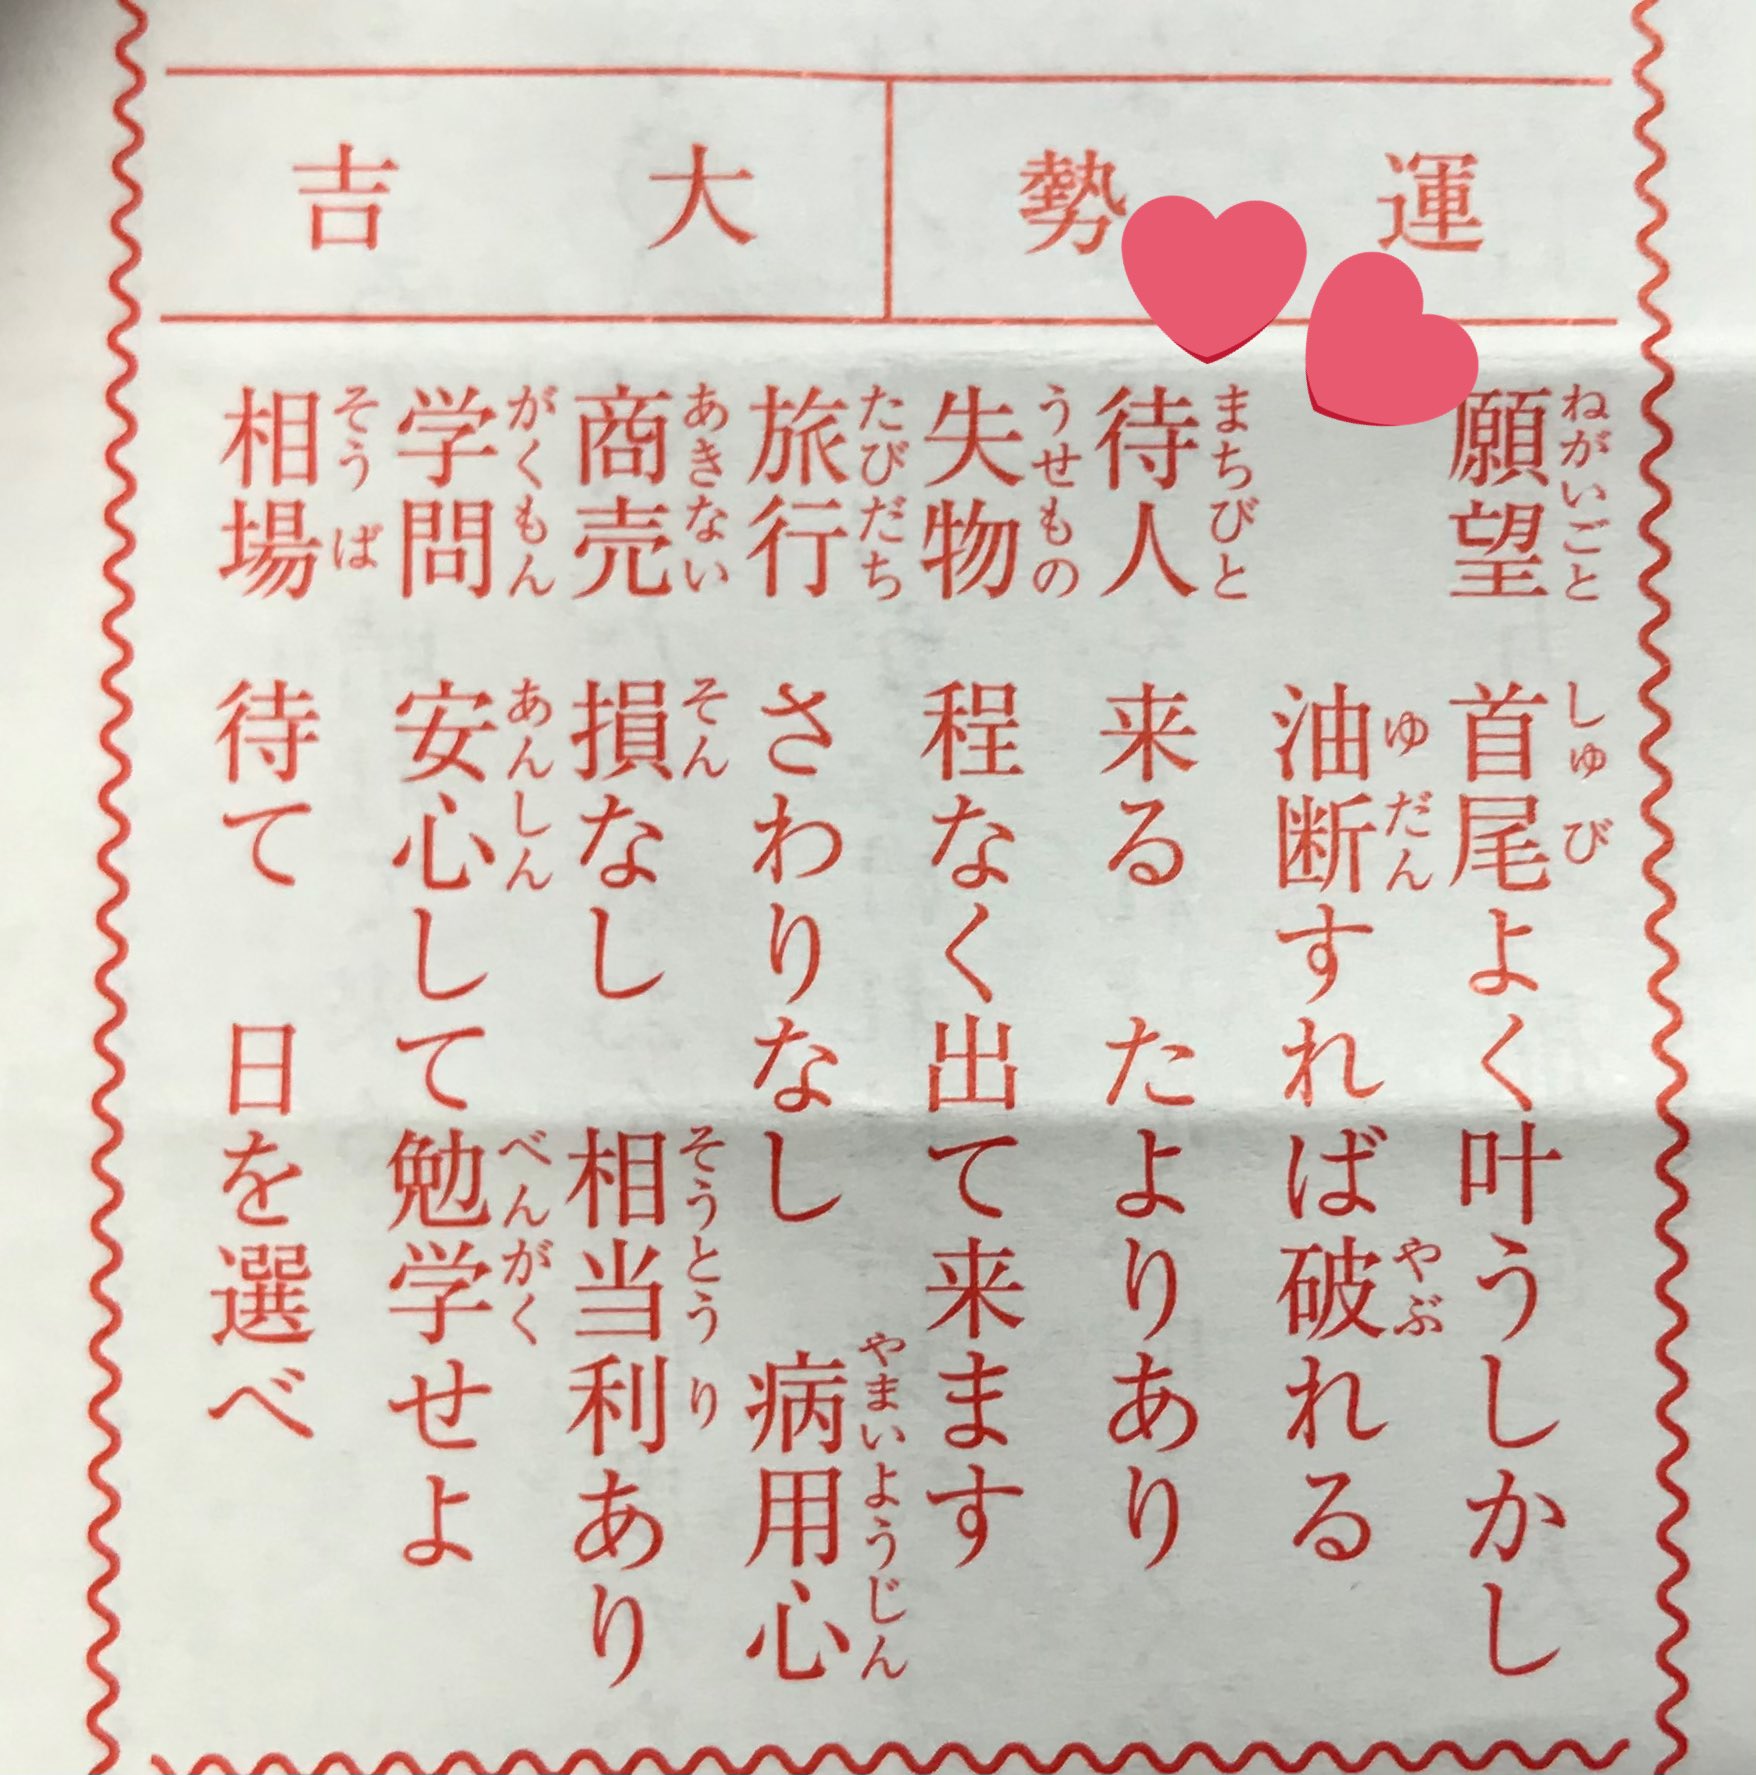 運勢 大吉
願望 首尾よく叶うしかし
油断すれば破れる
待人 来る たよりあり
失物 程なく出て来ます
旅行 さわりなし 病用心
商売 損なし 相当利あり
学問 安心して勉学せよ
相場 待て 日を選べ
ねがいごと しゅび
ゆだん やぶ
まちびと
うせもの
たびだち やまいようじん
あきない そん そうとうり
がくもん あんしん べんがく
そうば